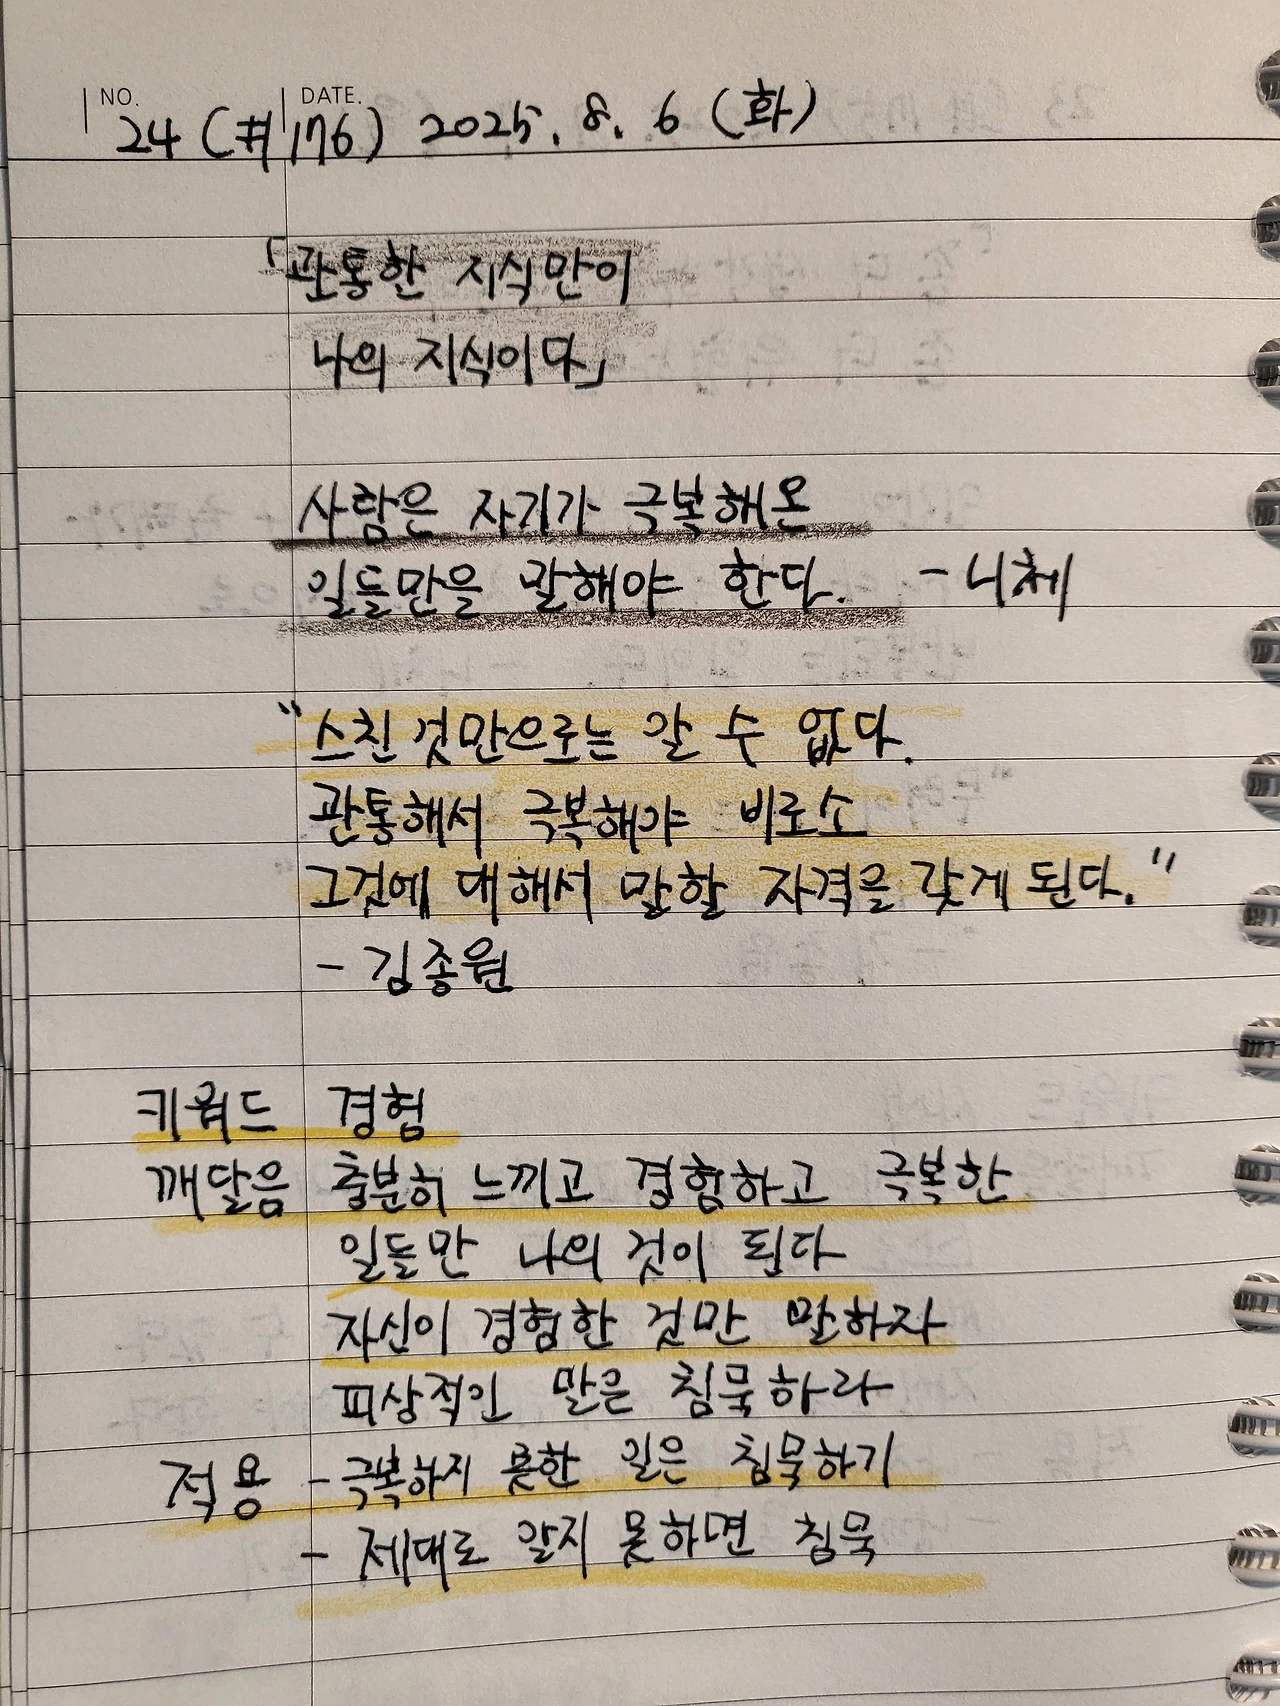 NO. DATE.
24 (#176) 2025. 8. 6 (화)
「관통한 지식만이
나의 지식이다」
사람은 자기가 극복해온
일들만을 말해야 한다. - 니체
"스친 것만으로는 갈 수 없다.
관통해서 극복해야 비로소
그것에 대해서 말할 자격을 갖게 된다."
- 김종원
키워드 경험
깨달음 충분히 느끼고 경험하고 극복한
일들만 나의 것이 된다
자신이 경험한 것만 말하자
피상적인 말은 침묵하라
적용 - 극복하지 못한 일은 침묵하기
- 제대로 알지 못하면 침묵